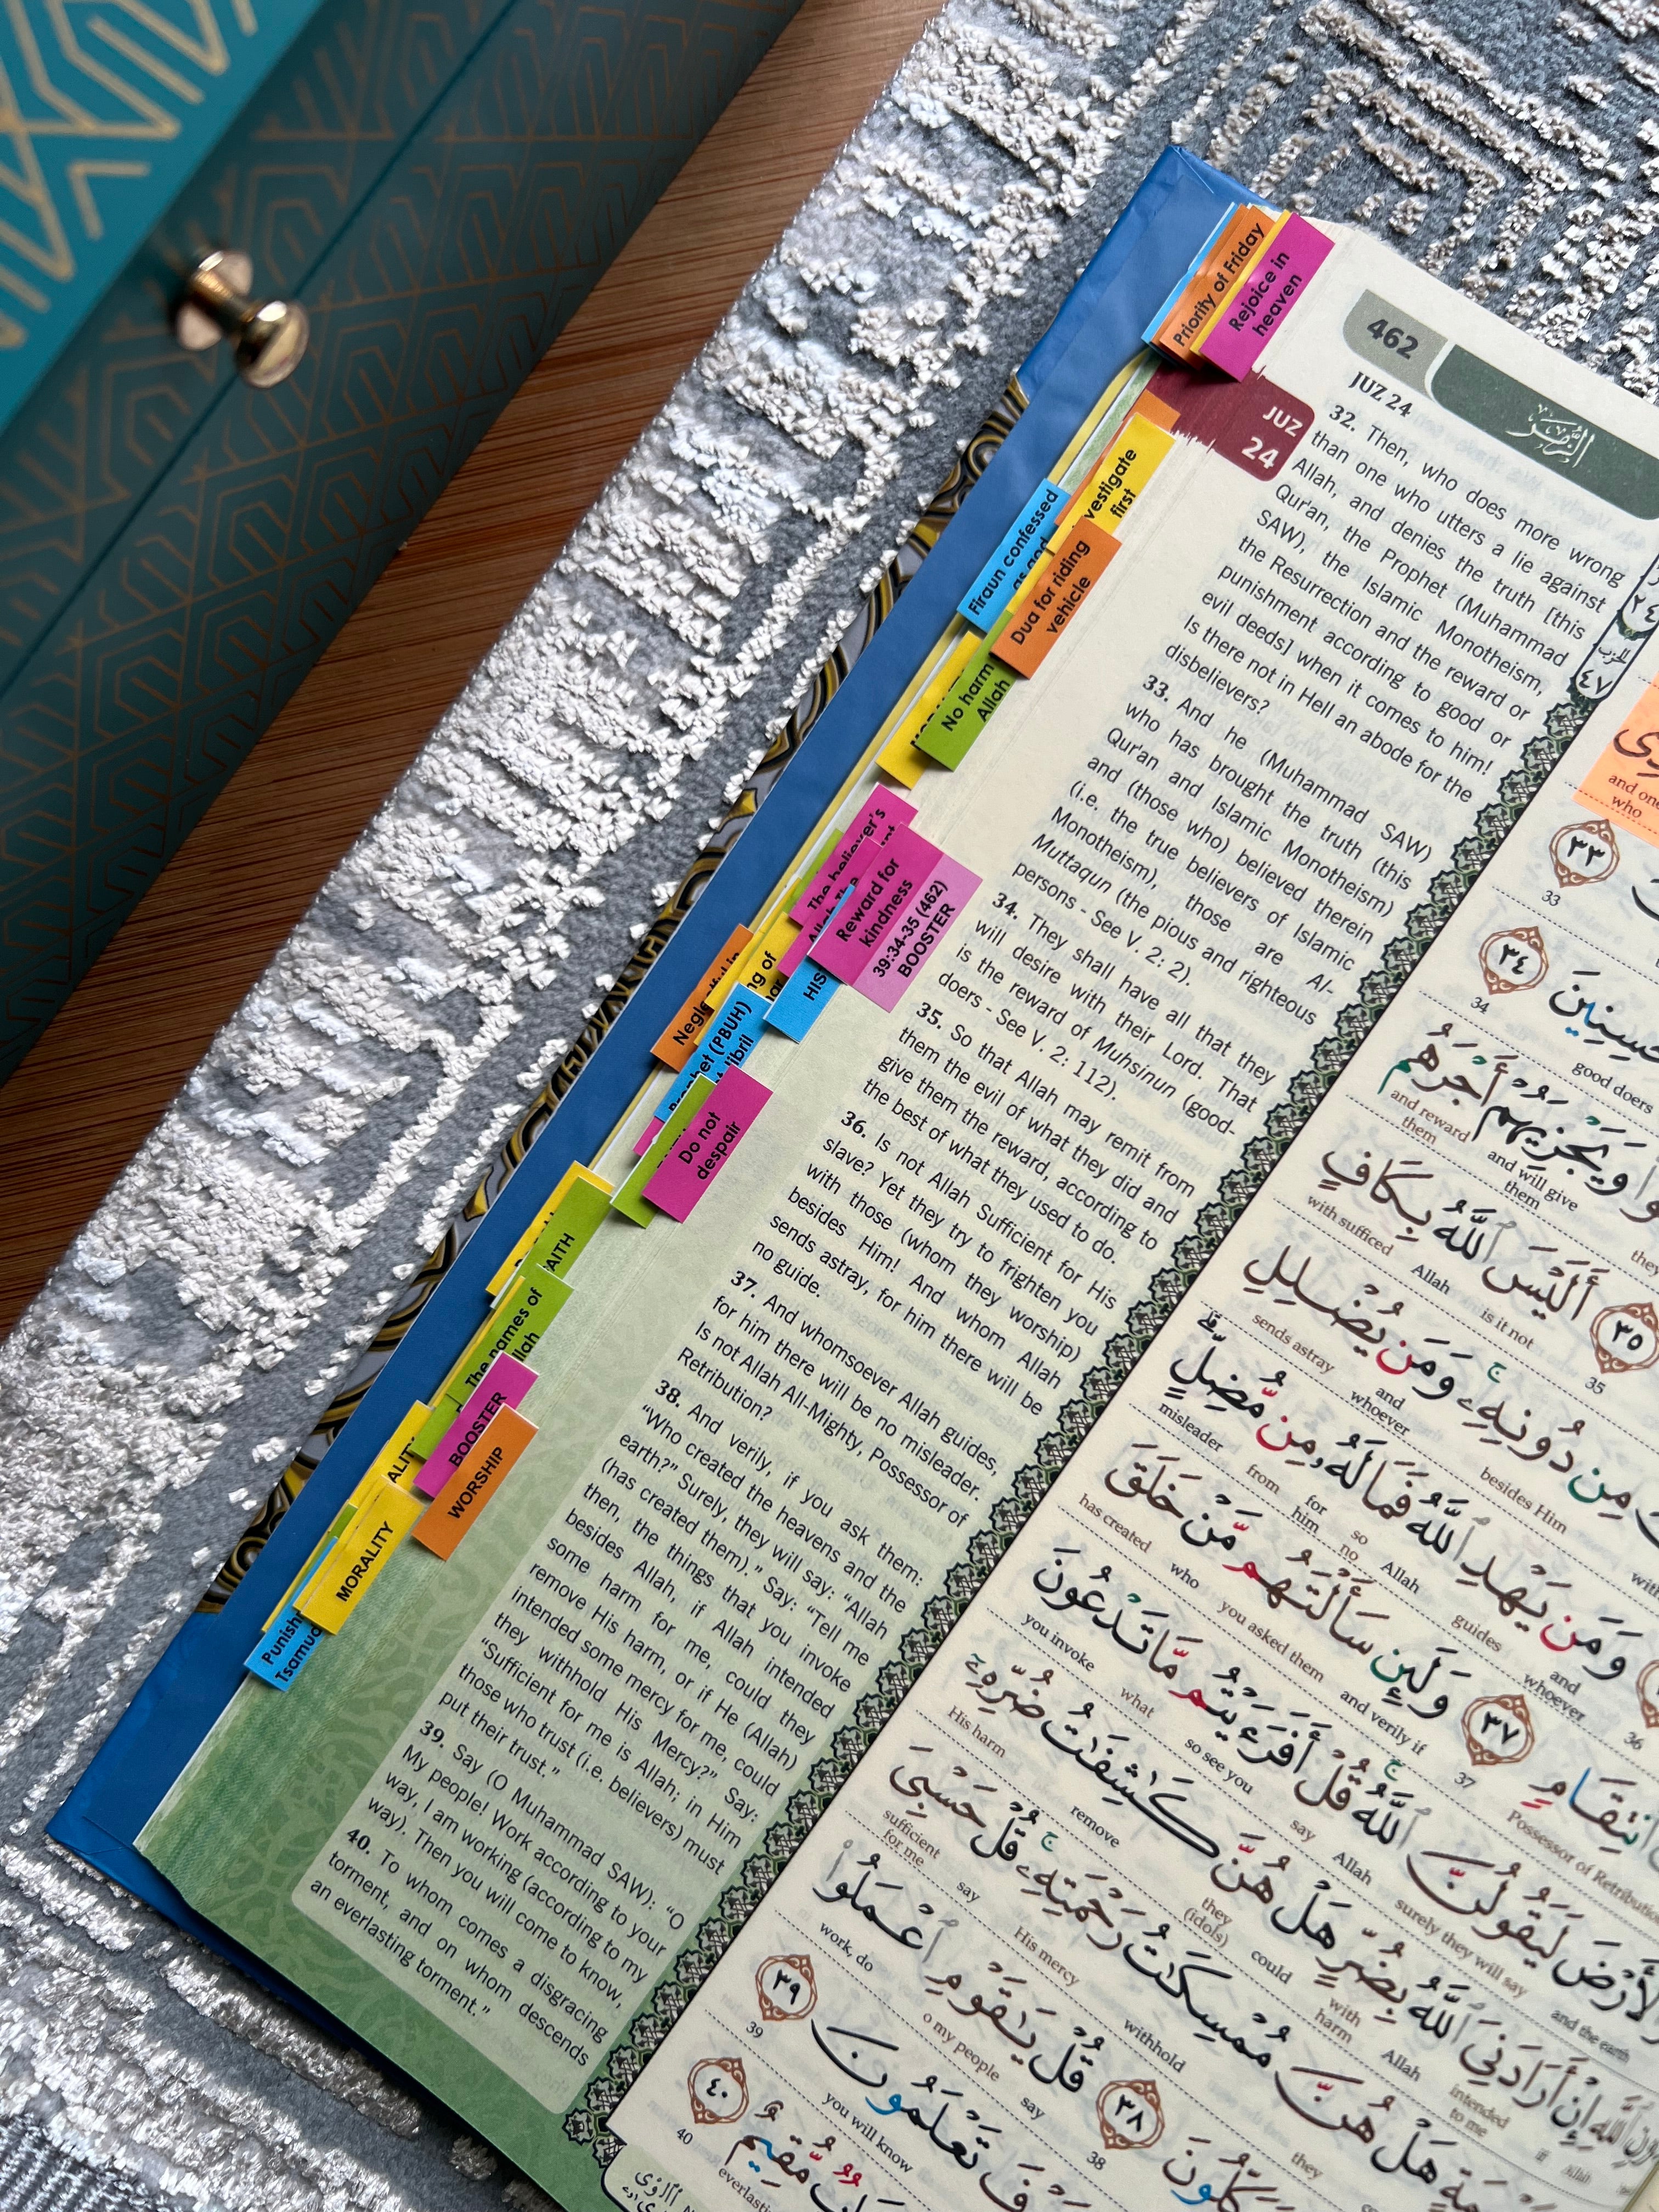 462
الزمر
JUZ 24
32. Then, who does more wrong
than one who utters a lie against
Allah, and denies the truth [this
Qur'an, the Prophet (Muhammad
SAW), the Islamic Monotheism,
the Resurrection and the reward or
punishment according to good or
evil deeds] when it comes to him!
Is there not in Hell an abode for the
disbelievers?
33. And he (Muhammad SAW)
who has brought the truth (this
Qur'an and Islamic Monotheism)
and (those who) believed therein
(i.e. the true believers of Islamic
Monotheism), those are Al-
Muttaqun (the pious and righteous
persons - See V. 2: 2).
34. They shall have all that they
will desire with their Lord. That
is the reward of Muhsinun (good-
doers - See V. 2: 112).
35. So that Allah may remit from
them the evil of what they did and
give them the reward, according to
the best of what they used to do.
36. Is not Allah Sufficient for His
slave? Yet they try to frighten you
with those (whom they worship)
besides Him! And whom Allah
sends astray, for him there will be
no guide.
37. And whomsoever Allah guides,
for him there will be no misleader.
Is not Allah All-Mighty, Possessor of
Retribution?
38. And verily, if you ask them:
"Who created the heavens and the
earth?" Surely, they will say: "Allah
(has created them)." Say: "Tell me
then, the things that you invoke
besides Allah, if Allah intended
some harm for me, could they
remove His harm, or if He (Allah)
intended some mercy for me, could
they withhold His Mercy?" Say:
"Sufficient for me is Allah; in Him
those who trust (i.e. believers) must
put their trust."
39. Say (O Muhammad SAW): "O
My people! Work according to your
way, I am working (according to my
way). Then you will come to know,
40. To whom comes a disgracing
torment, and on whom descends
an everlasting torment."
JUZ
24
Priority of Friday
Rejoice in
heaven
first
Firaun confessed
Dua for riding
vehicle
No harm
Allah
The believer's
Reward for
kindness
39:34-35 (462)
BOOSTER
HIS
(PBUH)
Jibril
Do not
despair
The names of
BOOSTER
WORSHIP
MORALITY
الحزب
٤٧
and one
who
٣٣
33
٣٤
34
good doers
أَجْرَهُم
وَيَجْزِيَهُمْ
and reward
them
and will give
them
they
أَلَيْسَ ٱللَّهُ بِكَافٍ
with sufficed
Allah
is it not
٣٥
35
مِن دُونِهِۦ ۚ وَمَن يُضْلِلِ
sends astray
and
whoever
besides Him
وَمَن يَهْدِ ٱللَّهُ فَمَا لَهُۥ مِن مُّضِلٍّ
misleader
from
for
him
so
no
Allah
guides
and
whoever
36
٣٧
37
وَلَئِن سَأَلْتَهُم مَّنْ خَلَقَ
has created
who
you asked them
and verily if
Possessor of Retribution
لَيَقُولُنَّ ٱللَّهُ ۚ قُلْ أَفَرَءَيْتُم مَّا تَدْعُونَ
you invoke
what
so see you
say
Allah
surely they will say
and the earth
إِنْ أَرَادَنِىَ ٱللَّهُ بِضُرٍّ هَلْ هُنَّ كَـٰشِفَـٰتُ ضُرِّهِۦٓ
His harm
remove
they
(idols)
could
with
harm
Allah
intended
to me
if
هَلْ هُنَّ مُمْسِكَـٰتُ رَحْمَتِهِۦ ۚ قُلْ حَسْبِىَ
sufficient
for me
say
His mercy
withhold
they
٣٨
38
قُلْ يَـٰقَوْمِ ٱعْمَلُوا۟
work, do
o my people
say
٣٩
39
تَعْلَمُونَ
you will know
٤٠
40
مُّقِيمٌ